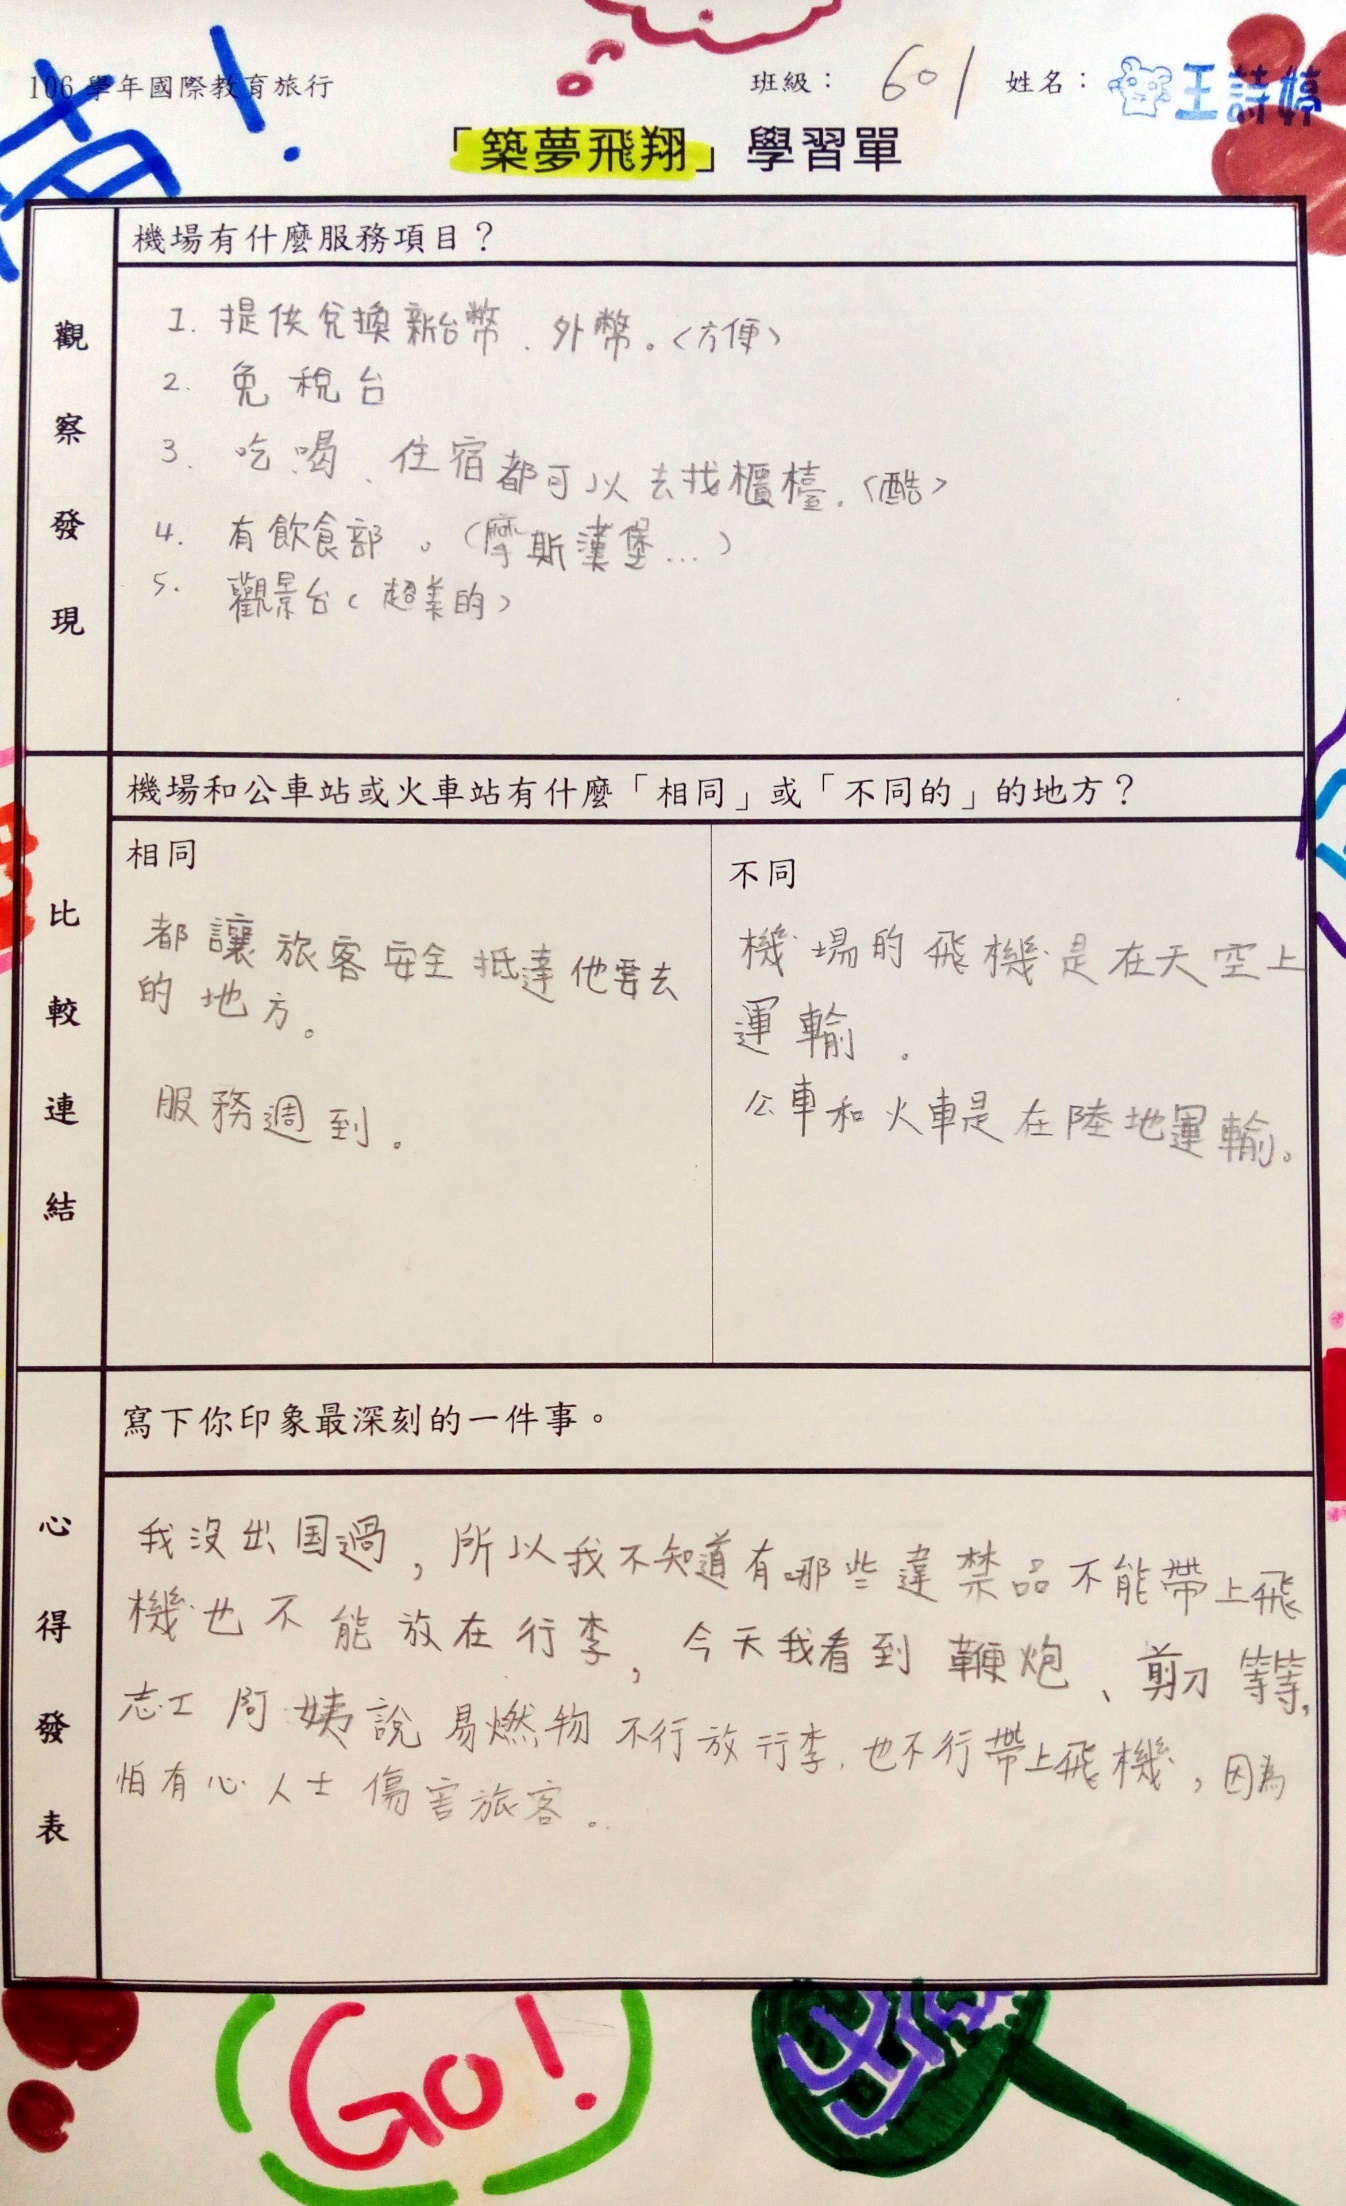 106 學年國際教育旅行
班級： 601 姓名： 王詩婷
「築夢飛翔」學習單
觀察發現
機場有什麼服務項目？
1. 提供兌換新台幣、外幣。<方便>
2. 免稅台
3. 吃喝、住宿都可以去找櫃檯.<酷>
4. 有飲食部。(摩斯漢堡...)
5. 觀景台(超美的)
比較連結
機場和公車站或火車站有什麼「相同」或「不同的」的地方？
相同
都讓旅客安全抵達他要去
的地方。
服務週到.
不同
機場的飛機是在天空上
運輸.
公車和火車是在陸地運輸。
心得發表
寫下你印象最深刻的一件事。
我沒出国過，所以我不知道有哪些違禁品不能帶上飛
機也不能放在行李，今天我看到鞭炮、剪刀等等，
志工阿姨說易燃物不行放行李.也不行帶上飛機，因為
怕有心人士傷害旅客。
GO!